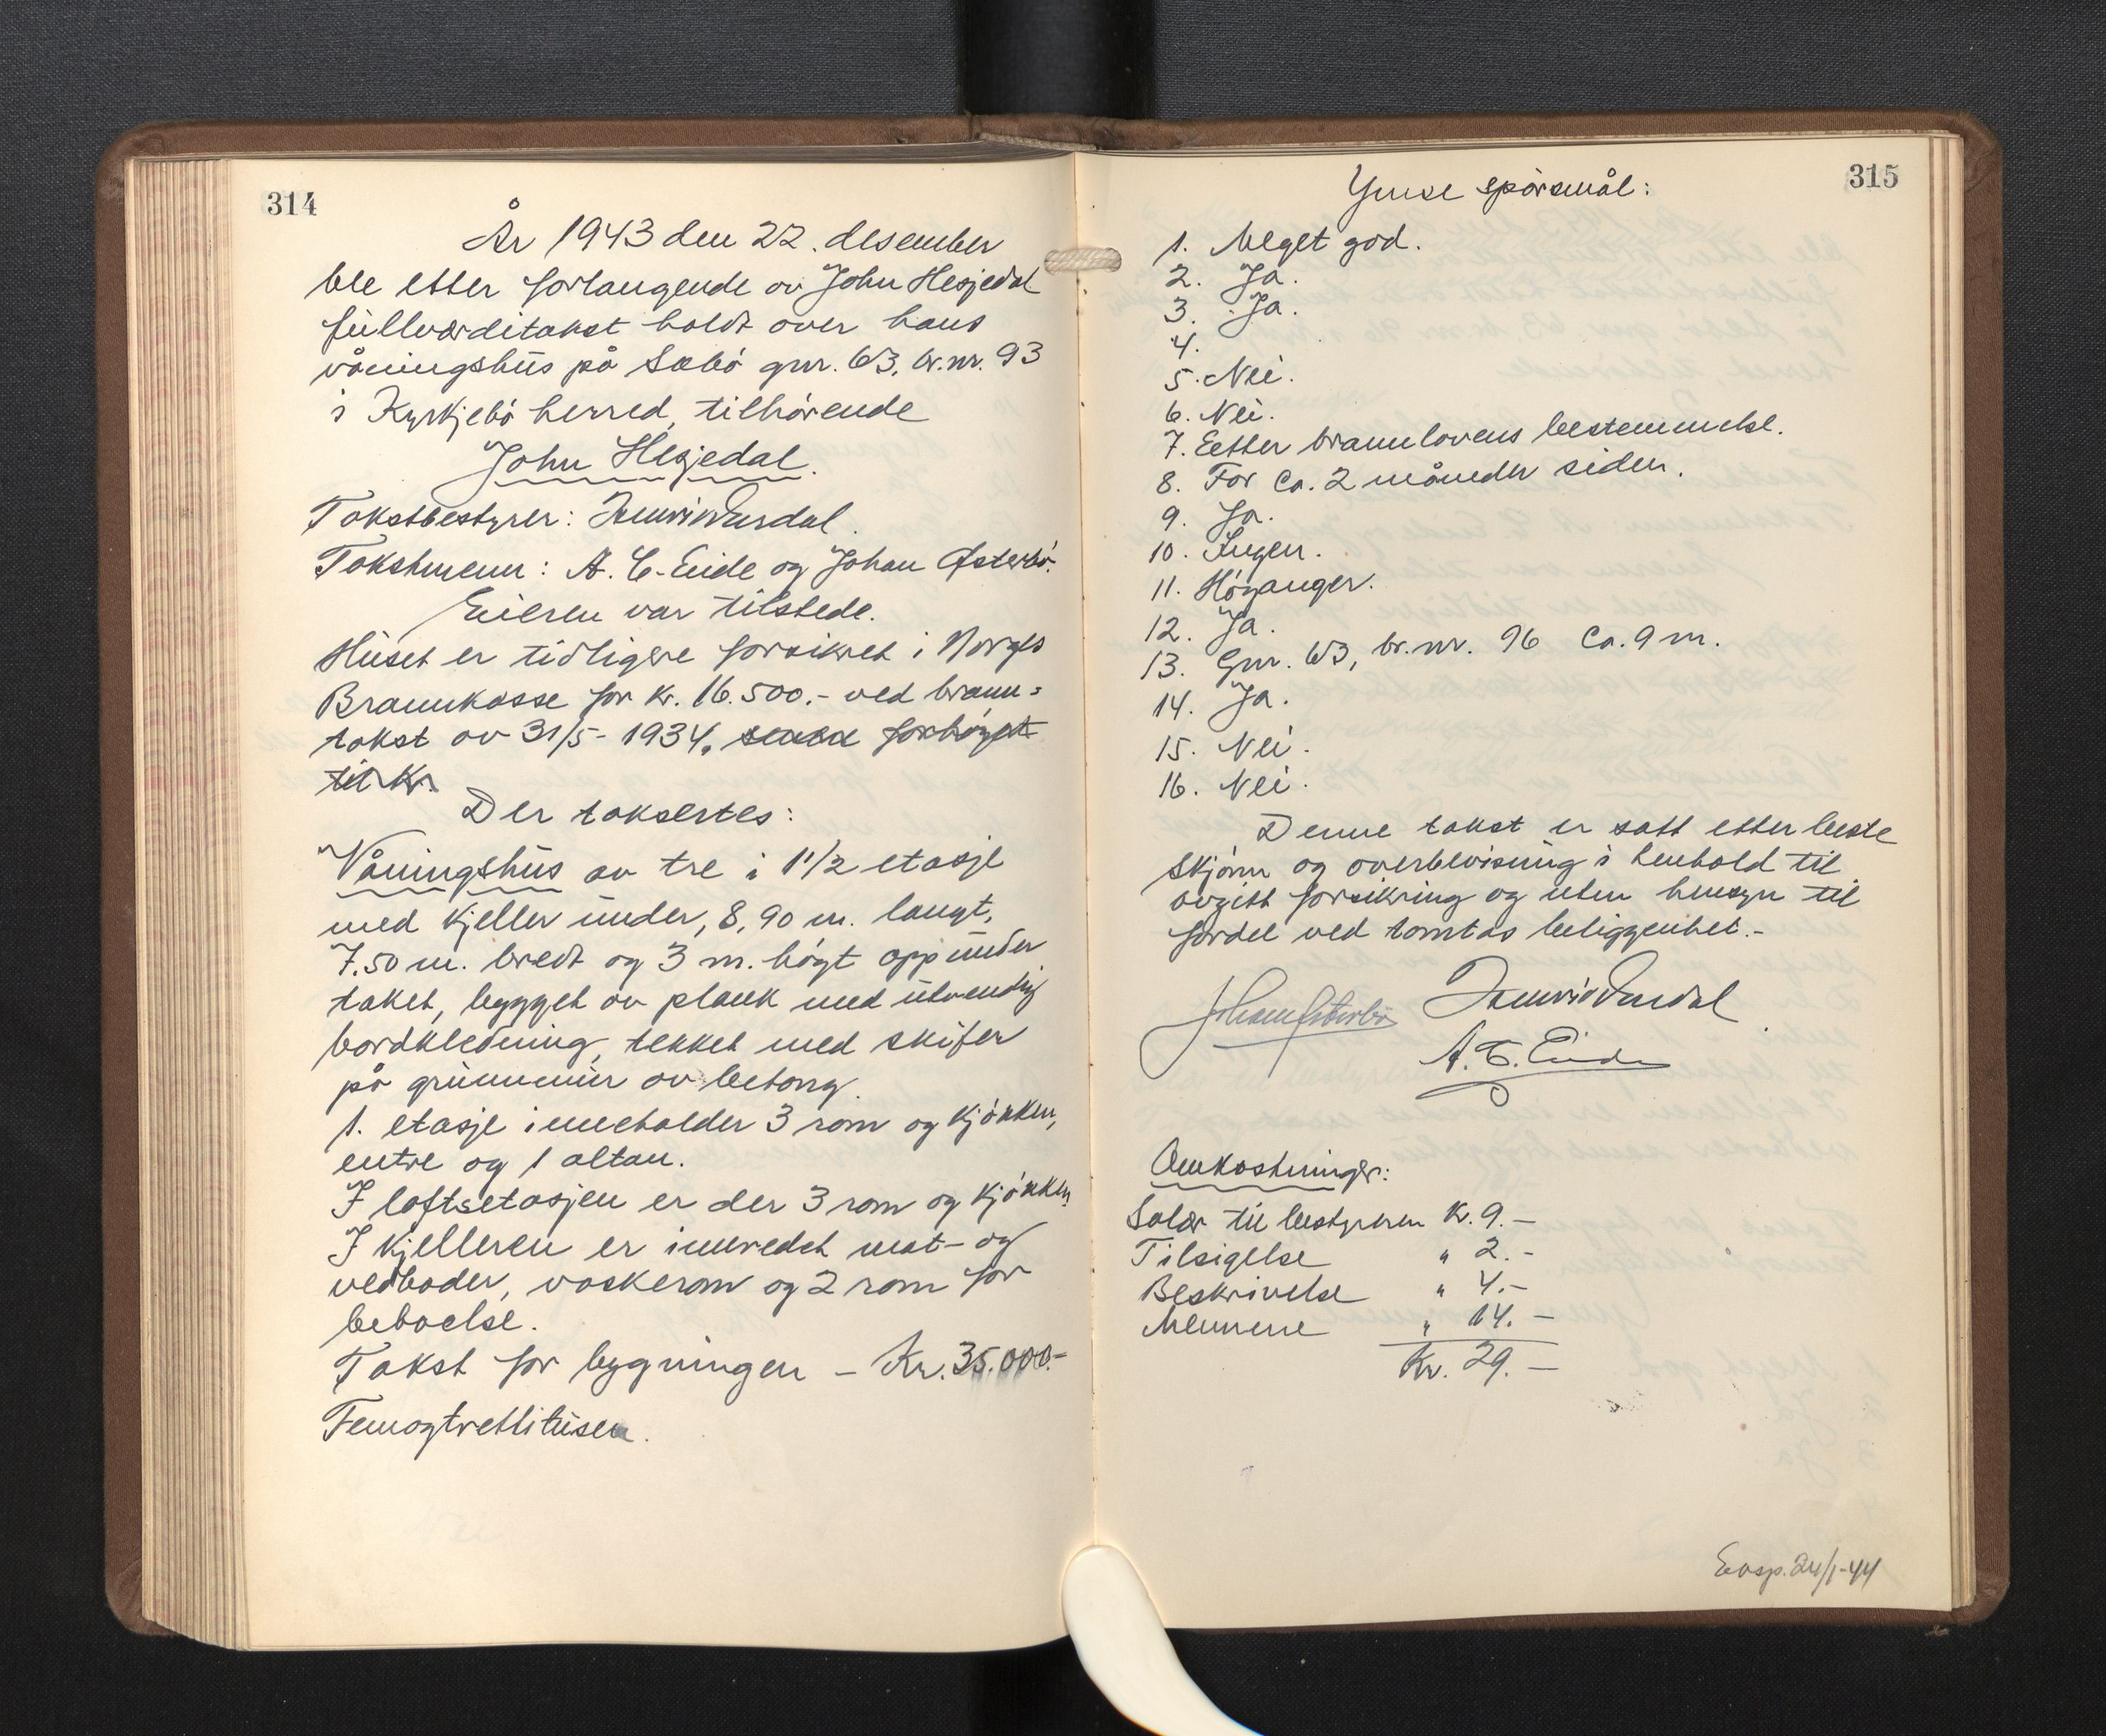 314
År 1943 den 22. desember
ble etter forlangende av John Hesjedal
fullverditakst holdt over hans
våningshus på Sæbö gnr. 63, br.nr. 93
i Kyrkjebö herred, tilhörende
John Hesjedal.
Takstbestyrer:
Takstmenn: A. C. Eide og Johan Østerbö.
Eieren var tilstede.
Huset er tidligere forsikret i Norges
Brannkasse for kr. 16.500.- ved brann-
takst av 31/5- 1934, senere forhöyet
til kr.
Der takseres:
Våningshus av tre i 1 1/2 etasje
med kjeller under, 8,90 m. langt,
7.50 m. bredt og 3 m. högt opp under
taket, bygget av plank med utvendig
bordkledning, tekket med skifer
på grunnmur av betong.
1. etasje inneholder 3 rom og kjökken,
entre og 1 altan.
I loftsetasjen er der 3 rom og kjökken.
I kjelleren er innredet mat- og
vedboder, vaskerom og 2 rom for
beboelse.
Takst for bygningen - Kr. 35.000.-
Femogtrettitusen.
315
Ymse spörsmål:
1. Meget god.
2. Ja.
3. Ja.
4.
5. Nei.
6. Nei.
7. Eetter brannlovens bestemmelse.
8. For ca. 2 måneder siden.
9. Ja.
10. Ingen.
11. Höyanger.
12. Ja.
13. Gnr. 63, br.nr. 96 ca. 9 m.
14. Ja.
15. Nei.
16. Nei.
Denne takst er satt etter beste
skjönn og overbevisning i henhold til
avgitt forsikring og uten hensyn til
fordel ved tomtas beliggenhet.-
Johan Østerbö
A. C. Eide
Omkostninger:
Salær til bestyreren kr. 9.-
Tilsigelse " 2.-
Beskrivelse " 4.-
Mennene " 14.-
Kr. 29.-
Eksp. 24/1-44